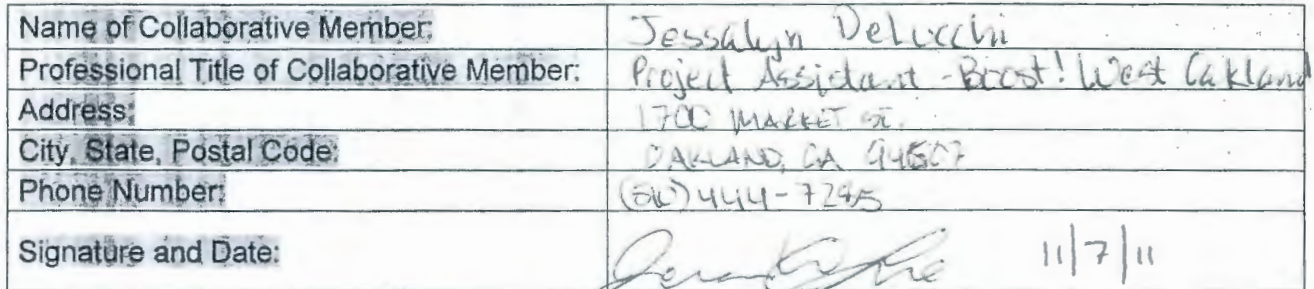 Name of Collaborative Member: Jessalyn Delucchi
Professional Title of Collaborative Member: Project Assistant - Boost! West Oakland
Address: 1700 MARKET ST.
City, State, Postal Code: OAKLAND, CA 94607
Phone Number: (510) 444-7295
Signature and Date: 11/7/11